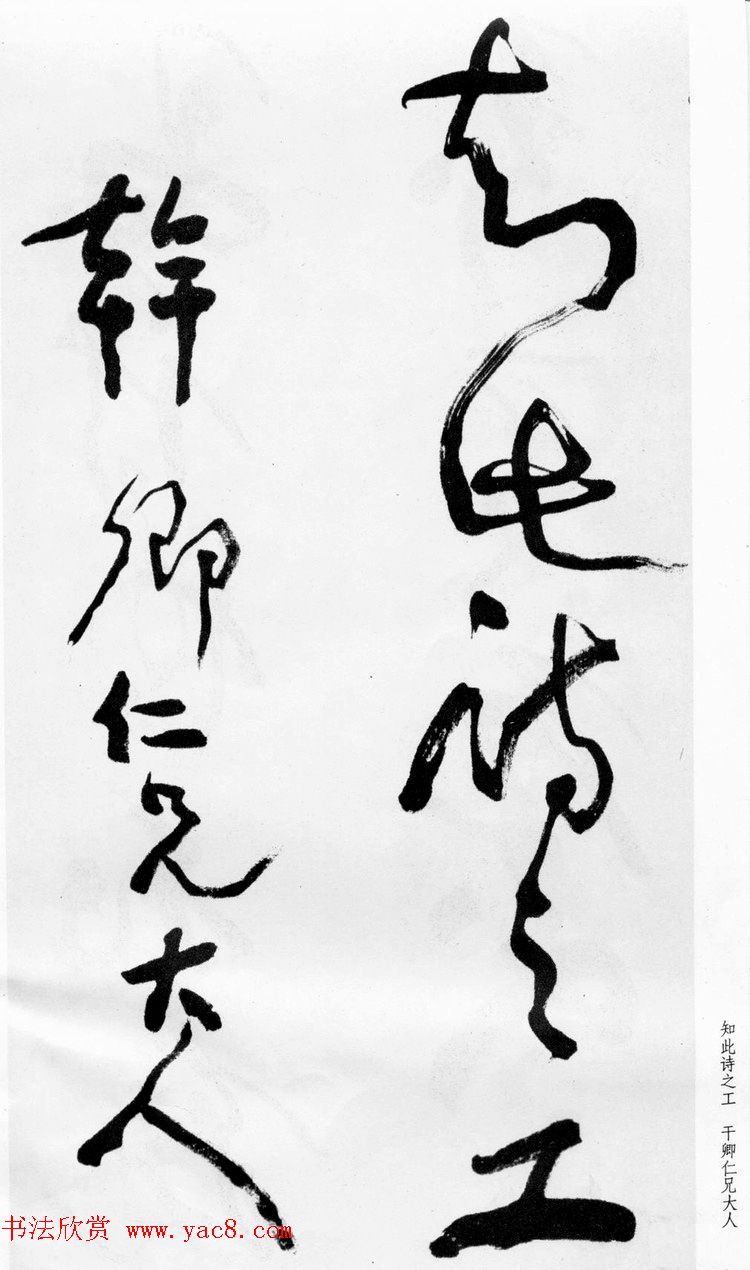 知此诗之工
幹卿仁兄大人
知此诗之工 干卿仁兄大人
书法欣赏 www.yac8.com